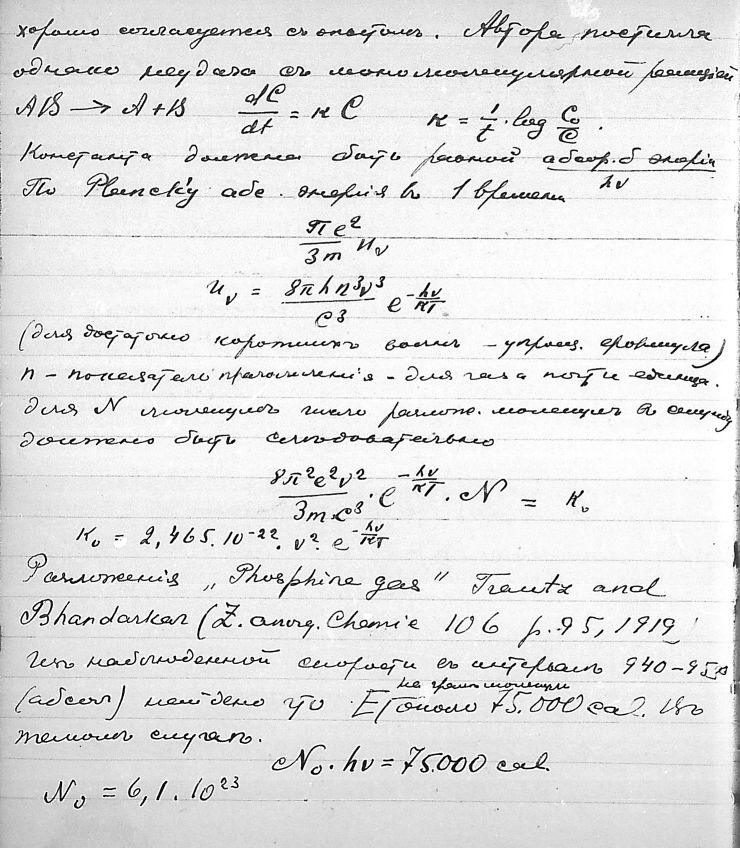 хорошо согласуется съ опытомъ. Автора постигла
однако неудача съ мономолекулярной реакціей
AB → A + B dC/dt = к C к = 1/t · log C₀/C .
Константа должна быть равной абсор. б энергія / hν
По Planck'у абс. энергія въ 1 времени
πe²/3m u_ν
u_ν = 8πhn³ν³/c³ e^(-hν/кT)
(для достаточно короткихъ волнъ – упрощ. формула)
n – показатель преломленія – для газа почти единица.
Для N молекулъ число разлож. молекулъ въ секунду
должно быть слѣдовательно
8π²e²ν²/3m.c³ · e^(-hν/кT) . N = K₀
K₀ = 2,465.10⁻²². ν². e^(-hν/кT)
Разложенія „Phosphine gas" Trautz and
Bhandarkar (Z. anorg. Chemie 106 p. 95, 1919)
Изъ наблюденной скорости въ интервалѣ 940–95
(абсол) найдено что E около 75.000 cal. Въ
на грамъ молекулу
такомъ случаѣ.
N₀ . hν = 75.000 cal.
N₀ = 6,1 . 10²³